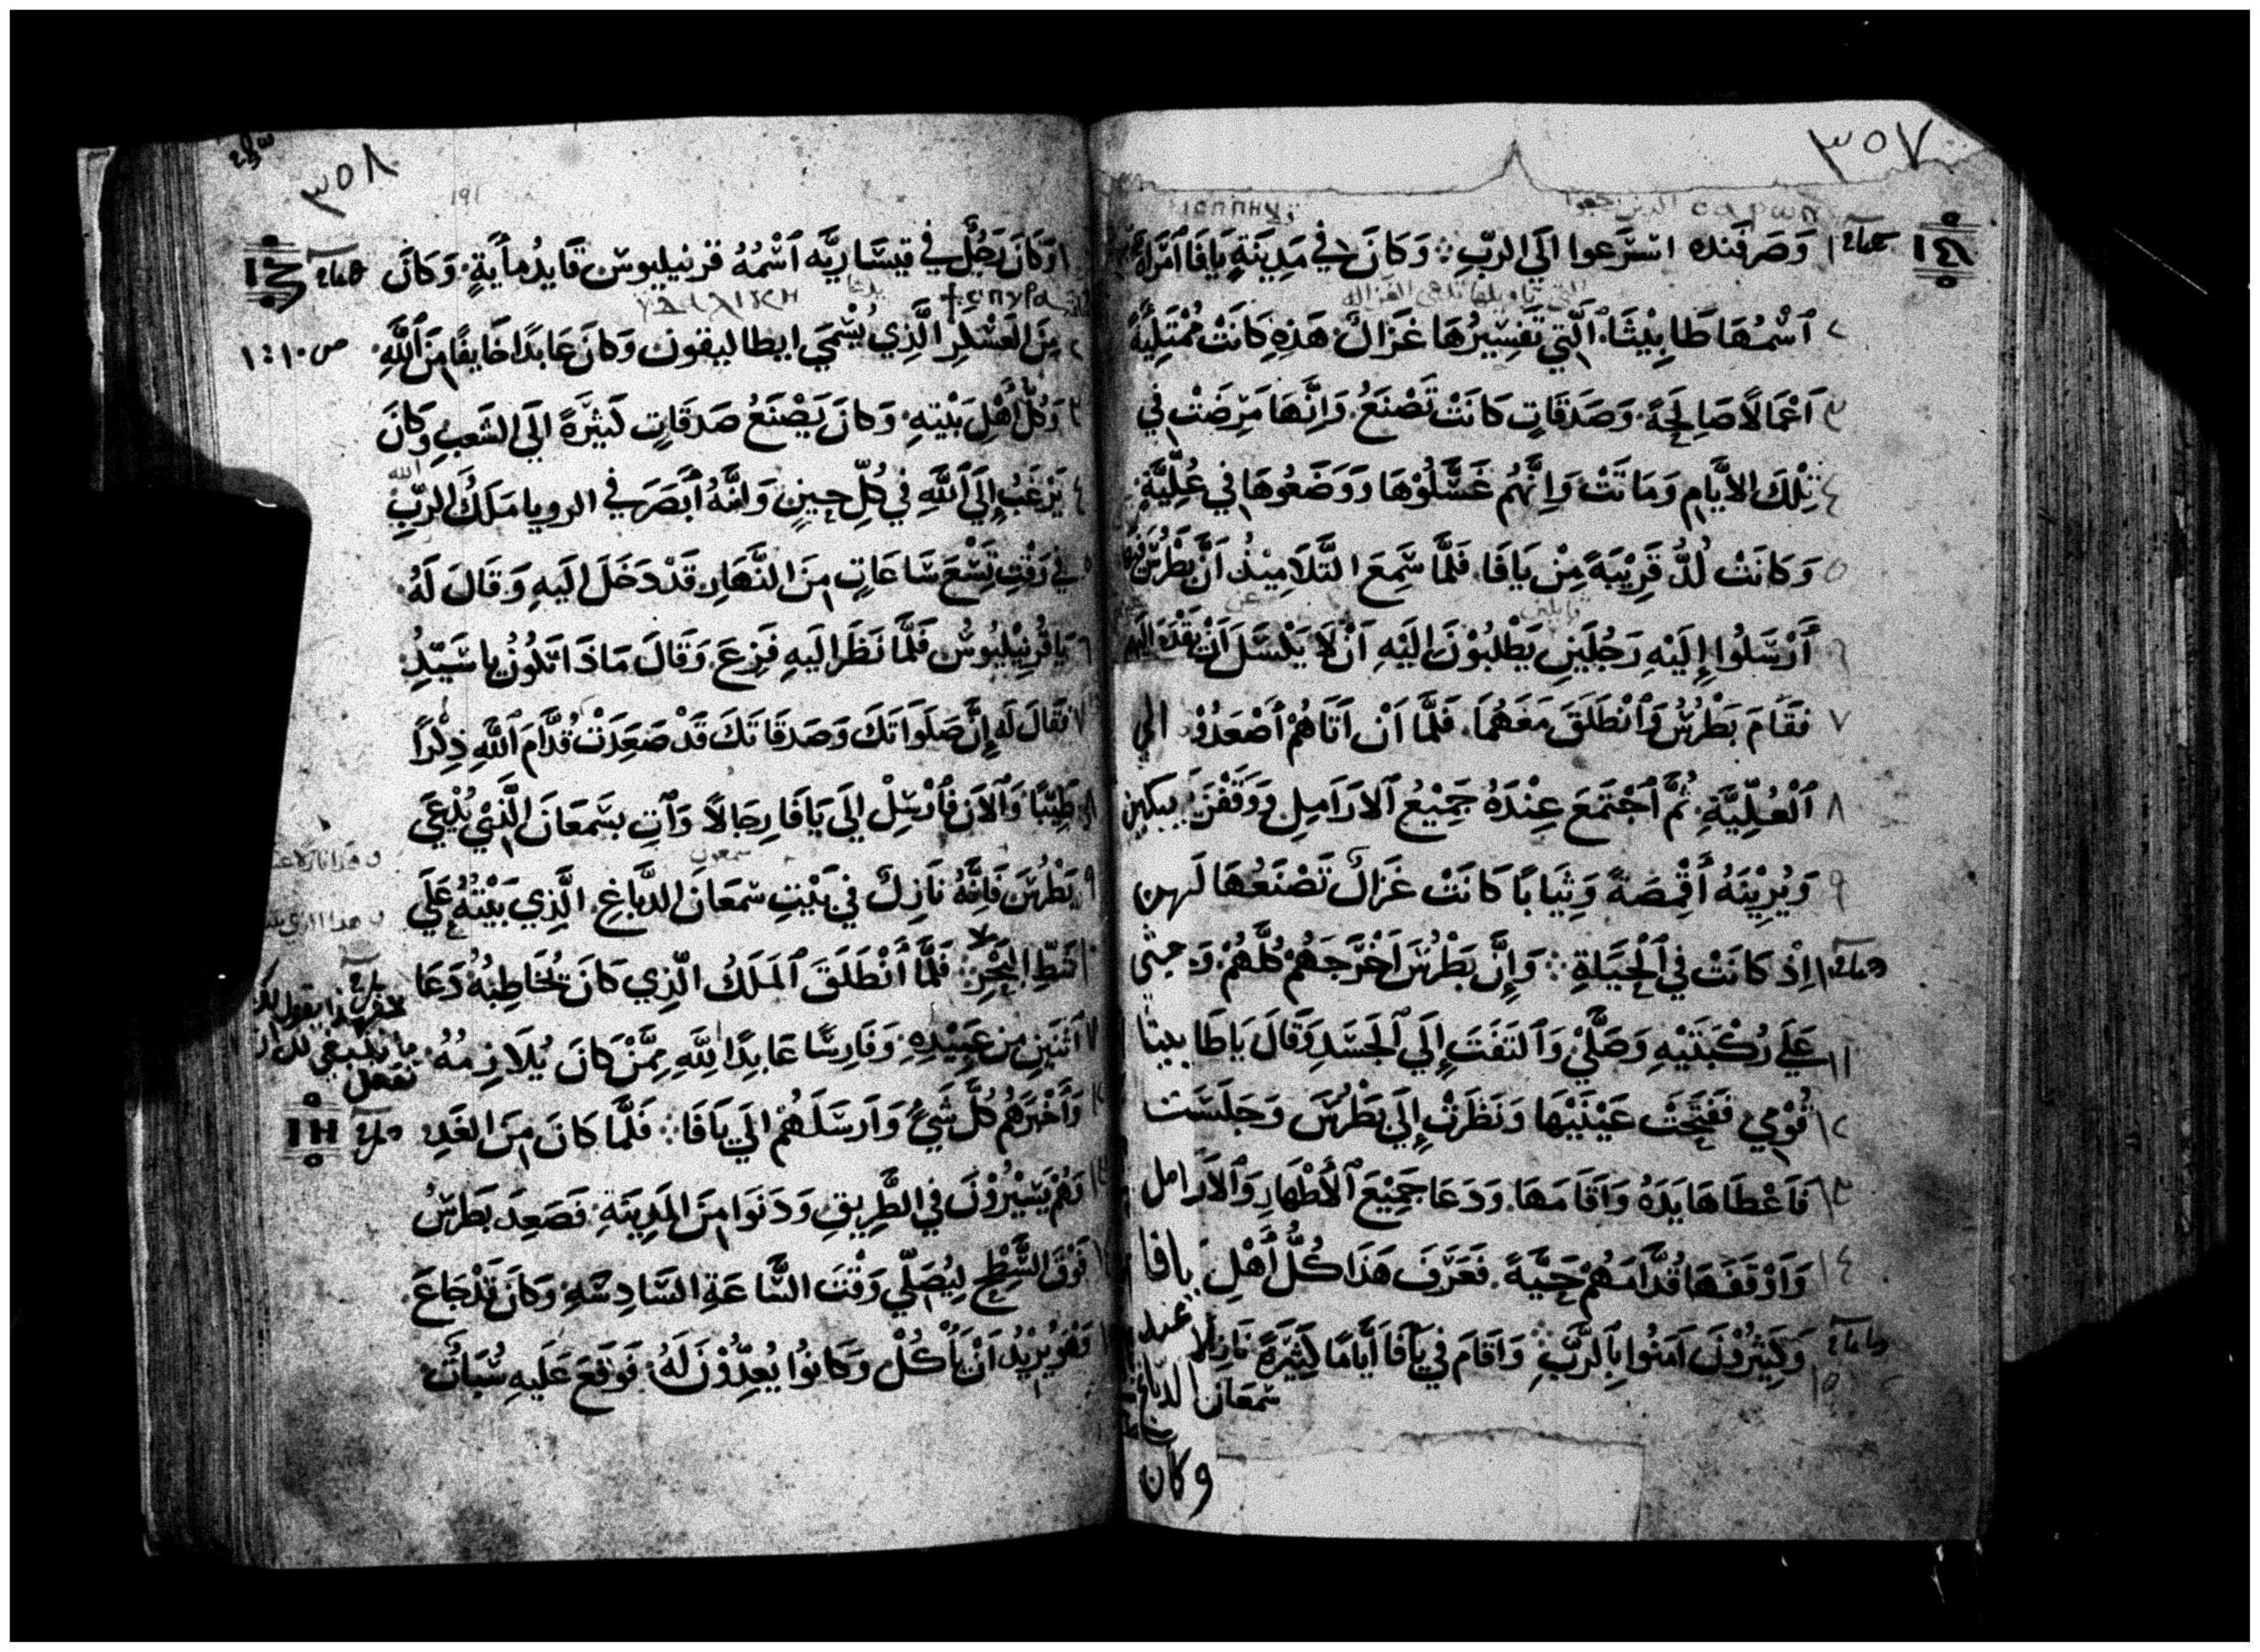 ٣٥٧
ⲥⲁⲣⲱⲛ
١ وَصَرفَنده اسْتَرَعوا الَى الربِّ ⁘ وَكَانَ فِي مَدِينَةِ يَافَا اَمْرَاةٌ
٢ ٱسْمُهَا طَابِيْثَا ٱلَّتِي تَفسِيْرُهَا غَزَالٌ هَذِهِ كَانَتْ مُمْتَلِيَةً
٣ اَعْمَالاً صَالِحَةً وَصَدَقَاتٍ كَانَتْ تَصْنَعُ وَاِنَّهَا مَرِضَتْ فِي
٤ تِلْكَ الاَيَّامِ وَمَاتَتْ وَاِنَّهُمْ غَسَّلُوْهَا وَوَضَعُوهَا فِي عُلِّيَّةٍ
٥ وَكَانَتْ لُدُّ قَرِيْبَةً مِنْ يَافَا فَلَمَّا سَمِعَ التَّلَامِيْذُ اَنَّ بَطْرُسَ
قايلين
٦ أَرْسَلُوا إِلَيْهِ رَجُلَينِ يَطْلُبُوْنَ اِلَيْهِ اَنْ لَا يَكْسَلَ اَنْ يَقْدَم اليهم
٧ فَقَامَ بَطْرُسُ وَٱنْطَلَقَ مَعَهُمَا فَلَمَّا اَنْ اَتَاهُمْ أَصْعَدُوْهُ الي
٨ ٱلْعُلِّيَّةِ ثُمَّ ٱجْتَمَعَ عِنْدَهُ جَمِيْعُ ٱلارَامِلِ وَوَقَفْنَ يبكين
٩ وَيُرِيْنَهُ أَقْمِصَةً وَثِيَابًا كَانَتْ غَزَالٌ تَصْنَعُهَا لَهن
١٠ اِذْ كَانَتْ فِي ٱلْحَيَاةِ ⁘ وَإِنَّ بَطْرُسَ اَخْرَجَهُمْ كُلَّهُمْ وَجثى
١١ عَلَى رُكْبَتَيْهِ وَصَلَّىْ وَٱلتَفَتَ إِلَى ٱلجَسَدِ وَقَالَ يَاطَابيتا
١٢ قُوْمِي فَفَتَحَتْ عَيْنَيْهَا وَنَظَرَتْ إِلَى بَطْرُسَ وَجَلَسَت
١٣ فَاَعْطَاهَا يَدَهُ وَاَقَامَهَا وَدَعَا جَمِيْعَ ٱلأَطْهَارِ وَٱلاَرَامل
١٤ وَاَوْقَفَهَا قُدَّامَهُمْ حَيَّةً فَعَرَفَ هَذَا كُلُّ أَهْلِ يافا
١٥ وَكَثِيْرُوْنَ اَمَنُوا بِالرَّبِّ ⁘ وَاَقَامَ فِي يَافَا أَيَّامًا كَثِيْرَةً نَازِلًا عند
سَمعَان الدباغ
وكان
٣٥٨
١٩١
١ وَكَانَ رَجُلٌ فِي قيسَارِيَّه ٱسْمُهُ قرنيليوس قَايدُ مأيَةٍ وَكَانَ
٢ مِنَ العَسْكرِ الَّذِي يُسْمَى ايطاليقون وَكَانَ عَابِدًا خَايفًا مِنَ ٱللَّهِ
ص ١٠:١
٣ وَكُلُّ أَهْلِ بَيْتِهِ وَكَانَ يَصْنَعُ صَدَقَاتٍ كَثِيْرَةً الَى الشَعبِ وَكَانَ
٤ يَرْغَبُ إِلَى ٱللَّهِ فِي كُلِّ حِينٍ وَاِنَّهُ أَبْصَرَ فِي الرويا مَلَكُ الربِّ
الله
٥ فِي وَقتِ تِسْعَ سَاعَاتٍ مِنَ النَّهَارِ قَدْ دَخَلَ اِلَيهِ وَقَالَ لَهُ
٦ يَا قُرنِيْلِيُوسُ فَلَمَّا نَظَرَ اليَهِ فَزِعَ وَقَالَ مَاذَا تَكُوْنُ يا سَيّدِ
٧ فَقَالَ لَه إِنَّ صَلَوَاتكَ وَصَدقَاتكَ قَدْ صَعِدَتْ قُدَّامَ ٱللَّهِ ذِكْراً
٨ طَيِّبًا وَٱلاَنَ فَأَرْسِلْ اِلَى يَافَا رِجَالاً وَٱتِ بِسَمعَانَ الَّذِي يُدْعَى
سمعون
٩ بَطْرُسَ فَاِنَّهُ نَازِلٌ فِي بَيْتِ سمعَانَ الدَّبَاغِ الَّذِي بَيْتُهُ عَلَى
١٠ شَطِّ البَحْرِ فَلَمَّا ٱنْطَلَقَ ٱلمَلَكُ الَّذِي كَانَ يُخَاطِبُهُ دَعَا
١١ اَثنَينِ مِن عَبِيْدِهِ وَفَارِسًا عَابِدًا لِلَّهِ مِمَّنْ كَانَ يُلَازِمُهُ
فهذا يقول لك
ما ينبغي لك ان
تفعل
١٢ وَأَخْبَرَهُم كُلَّ شَيٍ وَاَرسَلَهُمْ الَى يَافَا ⁘ فَلَمَّا كَانَ مِنَ الغَدِ
١٣ وَهُمْ يَسِيْرُوْنَ فِي الطَّرِيقِ وَدَنَوا مِنَ المَدِينَةِ فَصَعِدَ بَطرسُ
١٤ فَوْقَ السَّطْحِ لِيُصَلِّي وَقْتَ السَّاعَةِ السَّادِسَهِ وَكَانَ قَدْ جَاعَ
١٥ وَهُوَ يُرِيْدُ اَنْ يَأْكُلْ وَكَانوُا يُعِدُّوْنَ لَهُ فَوَقَعَ عَلَيهِ سُبَاتٌ